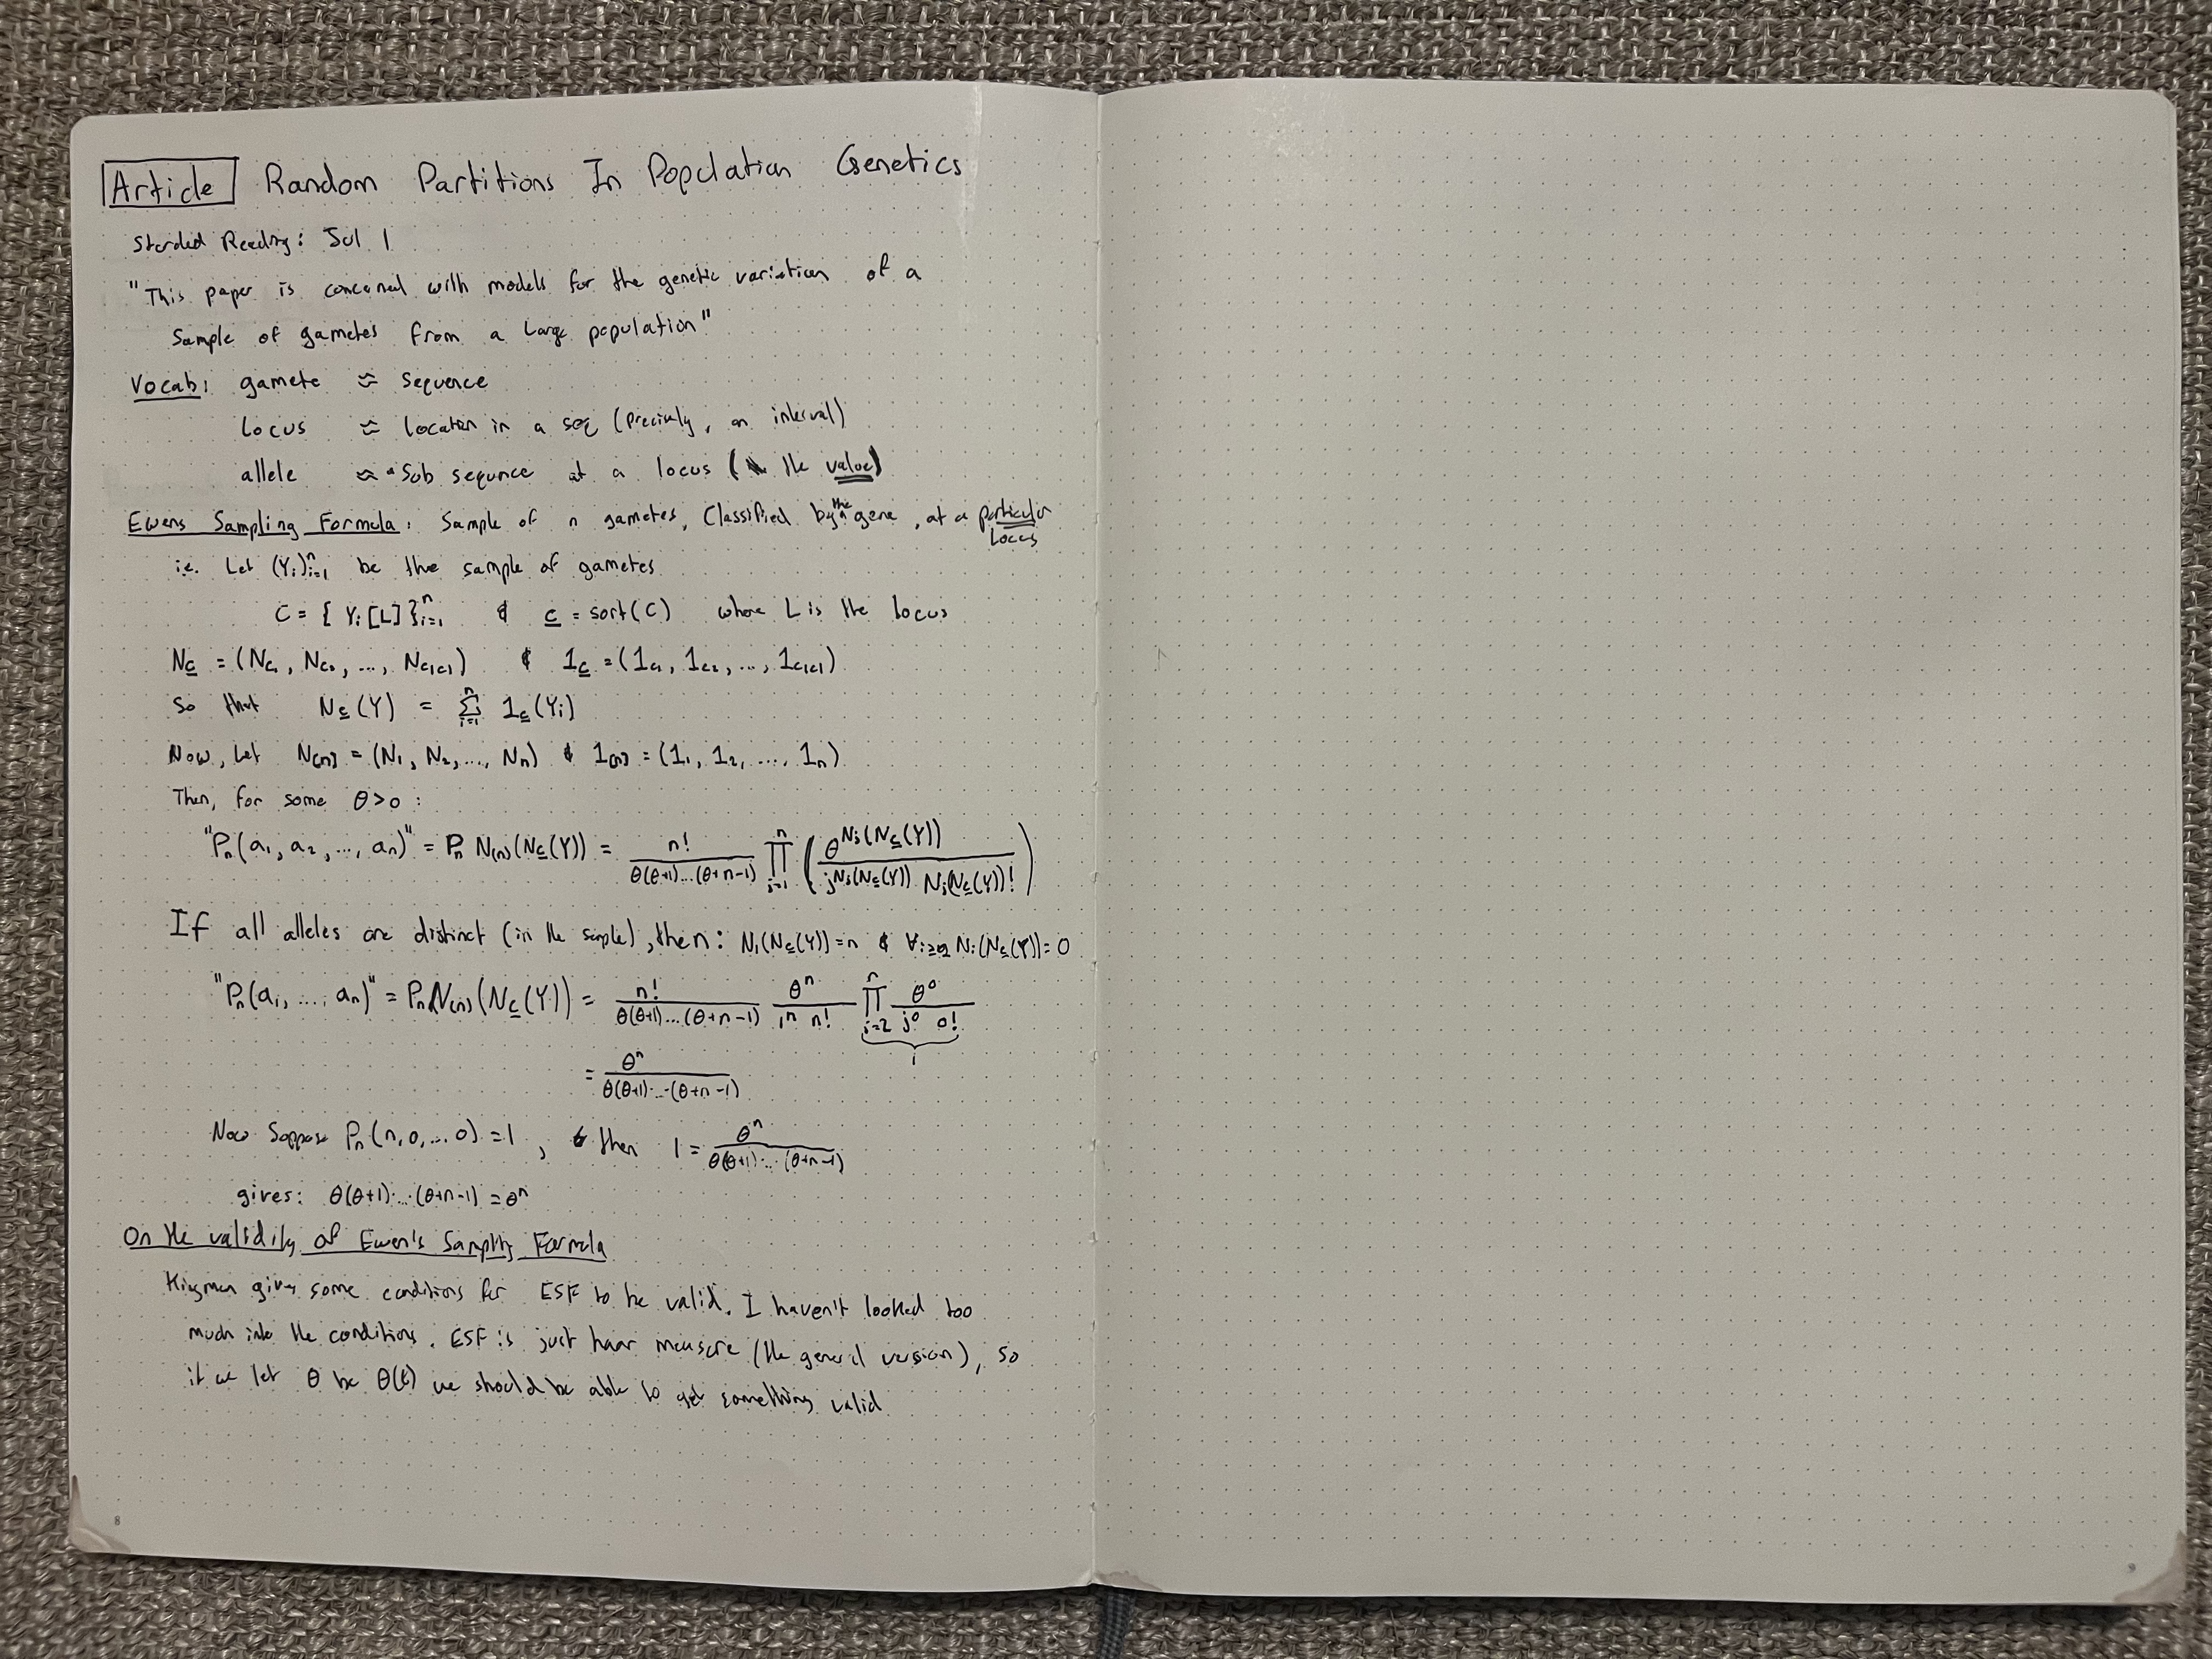 Article Random Partitions In Population Genetics
Started Reading: Jul 1
"This paper is concerned with models for the genetic variation of a
sample of gametes from a large population"
Vocab: gamete ≈ sequence
locus ≈ location in a seq (precisely, an interval)
allele ≈ sub sequence at a locus (the value)
Ewens Sampling Formula: Sample of n gametes, Classified by the gene, at a particular
locus
i.e. Let (Yᵢ)ᵢ₌₁ⁿ be the sample of gametes
C = { Yᵢ[L] }ᵢ₌₁ⁿ & c = sort(C) where L is the locus
N_c = (N_c₁, N_c₂, ..., N_c|c|) & 1_c = (1_c₁, 1_c₂, ..., 1_c|c|)
So that N_c(Y) = Σᵢ₌₁ⁿ 1_c(Yᵢ)
Now, Let N[n] = (N₁, N₂, ..., Nₙ) & 1[n] = (1₁, 1₂, ..., 1ₙ)
Then, for some θ>0:
"Pₙ(a₁, a₂, ..., aₙ)" = Pₙ N[n](N_c(Y)) = n! / θ(θ+1)...(θ+n-1) ∏ⱼ₌₁ⁿ ( θ^Nⱼ(N_c(Y)) / j^Nⱼ(N_c(Y)) Nⱼ(N_c(Y))! )
If all alleles are distinct (in the sample), then: N₁(N_c(Y)) = n & ∀ᵢ≥₂ Nᵢ(N_c(Y)) = 0
"Pₙ(a₁, ..., aₙ)" = Pₙ N[n](N_c(Y)) = n! / θ(θ+1)...(θ+n-1) · θⁿ / 1ⁿ n! ∏ⱼ₌₂ⁿ θ⁰ / j⁰ 0!
1
= θⁿ / θ(θ+1)...(θ+n-1)
Now Suppose Pₙ(n, 0, ..., 0) = 1, then 1 = θⁿ / θ(θ+1)...(θ+n-1)
gives: θ(θ+1)...(θ+n-1) = θⁿ
On the validity of Ewen's Sampling Formula
Kingman gives some conditions for ESF to be valid. I haven't looked too
much into the conditions. ESF is just haar measure (the general version), so
if we let θ be θ(t) we should be able to get something valid
8
9